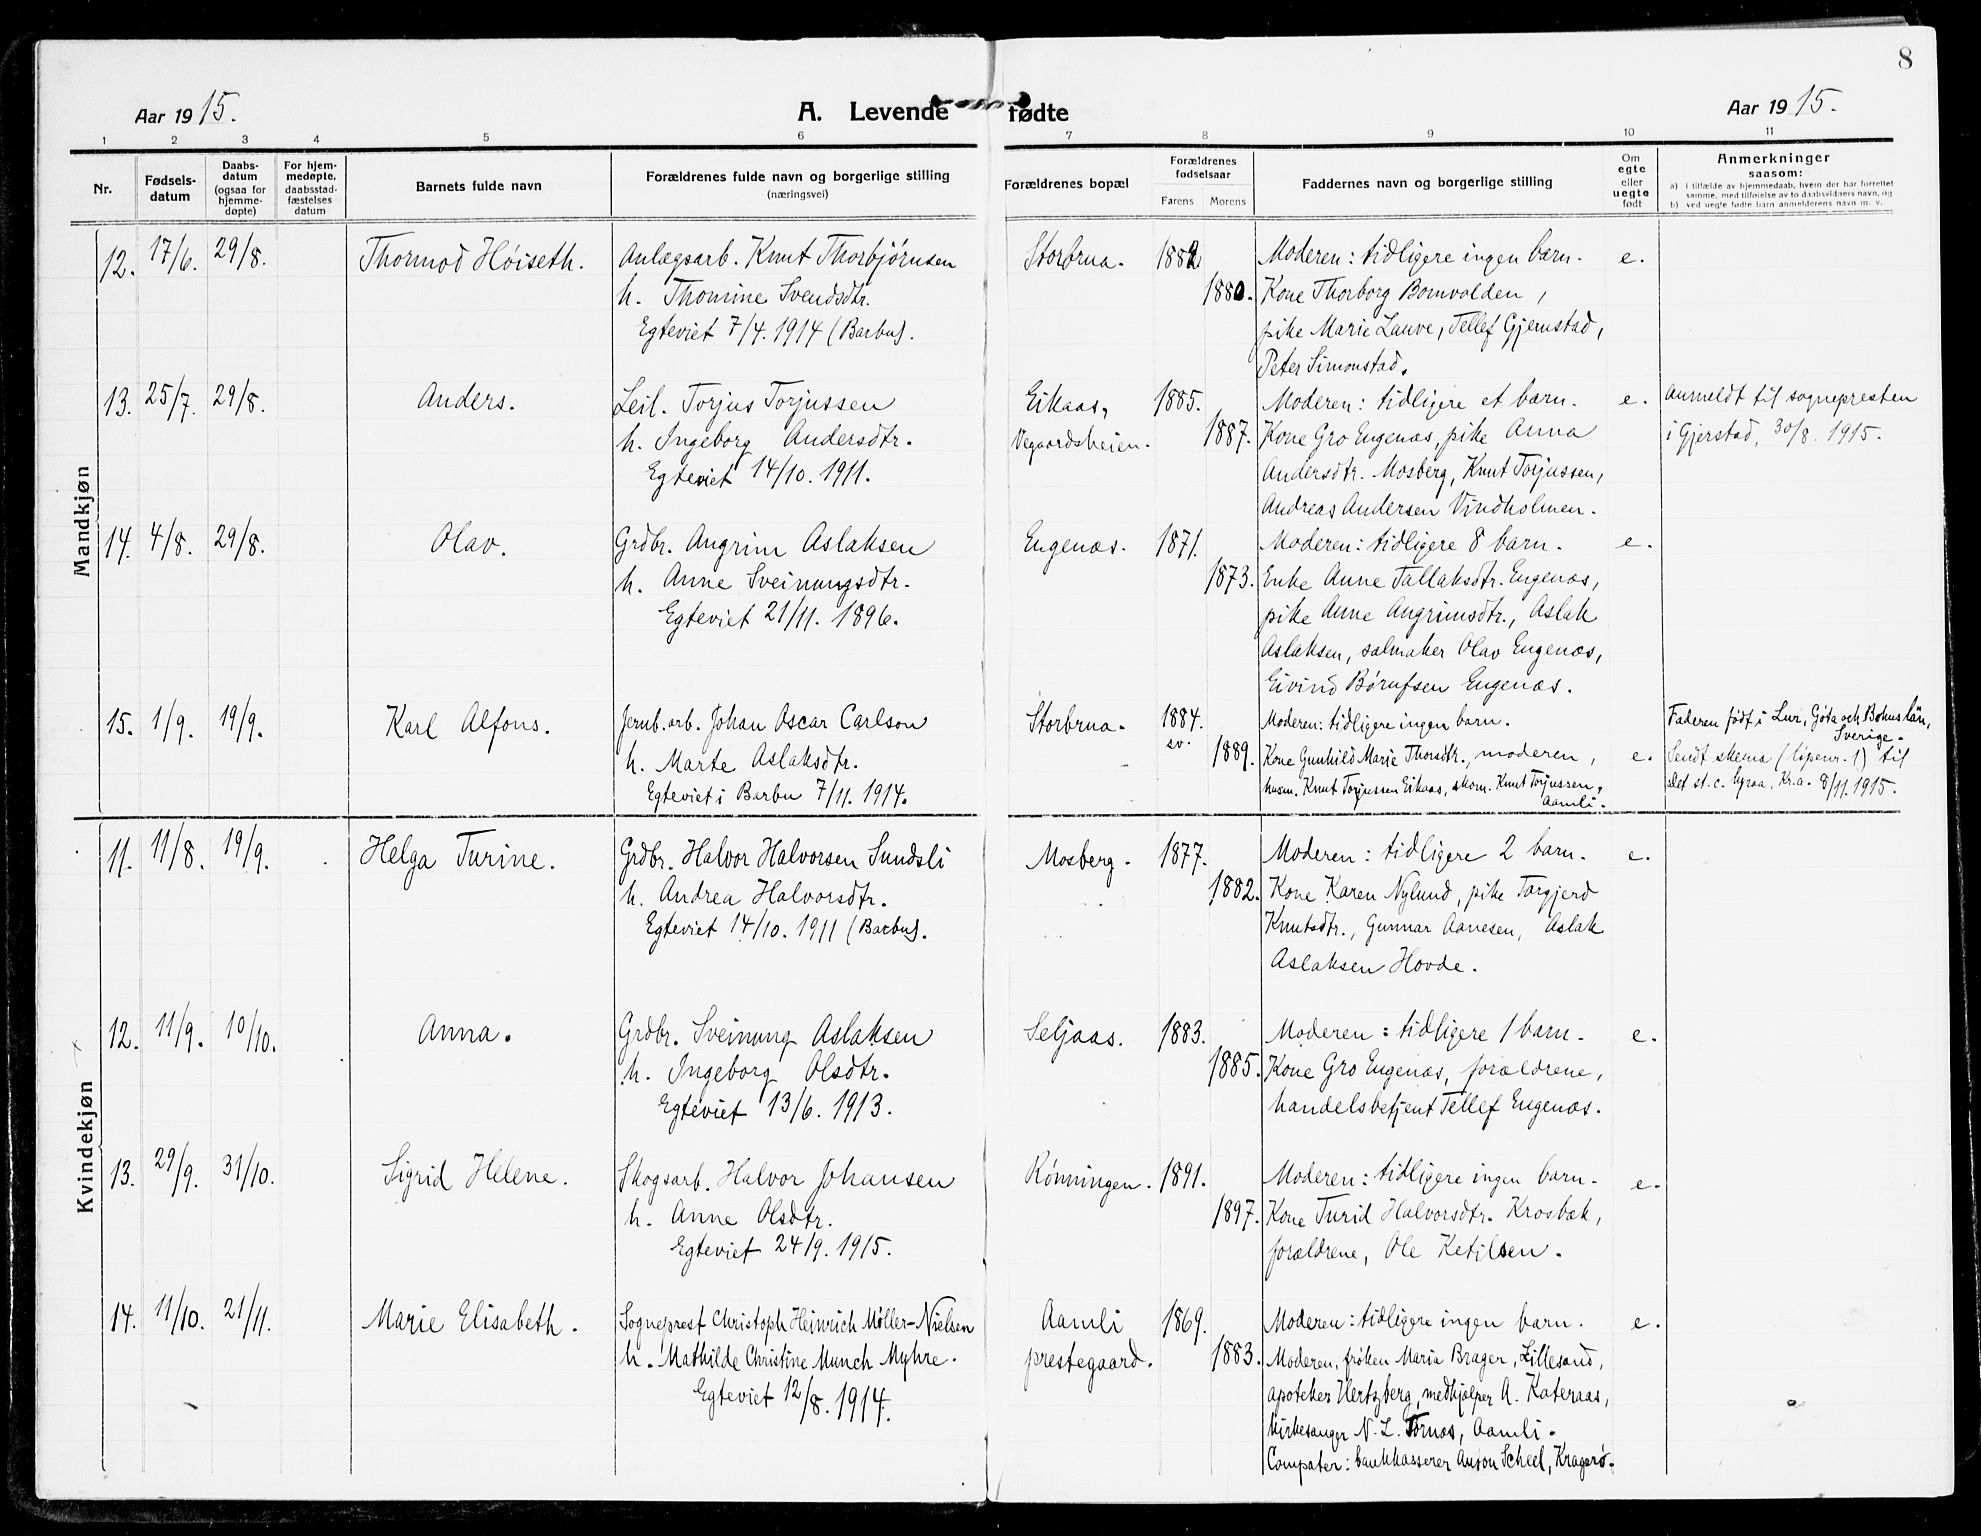 8
Aar 1915. A. Levende fødte Aar 1915.
1 2 3 4 5 6 7 8 9 10 11
Nr.
Fødsels-
datum
Daabs-
datum
(ogsaa for
hjemme-
døpte)
For hjem-
medøpte,
daabsstad-
fæstelses
datum
Barnets fulde navn
Forældrenes fulde navn og borgerlige stilling
(næringsvei)
Forældrenes bopæl
Forældrenes
fødselsaar
Farens Morens
Faddernes navn og borgerlige stilling
Om
egte
eller
uegte
født
Anmerkninger
saasom:
a) i tilfælde av hjemmedaab, hvem der har forrettet
samme, med tilføielse av to daabsvidners navn, og
b) ved uegte fødte barn anmelderens navn m. v.
Mandkjøn
12. 17/6. 29/8. Thormod Høiseth. Anlægsarb. Knut Thorbjørnsen Storbrua. 1882 Moderen: tidligere ingen barn. e.
h. Thomine Svendsdtr. 1880. Kone Thorborg Bomvolden,
Egteviet 7/4. 1914 (Barbu). pike Marie Lauve, Tellef Gjernstad,
Peter Simonstad.
13. 25/7. 29/8. Anders. Leil. Torjus Torjussen Eikaas, 1885. Moderen: tidligere et barn. e. Anmeldt til sognepresten
h. Ingeborg Andersdtr. Vegaardsheien. 1887. Kone Gro Engenæs, pike Anna i Gjerstad, 30/8. 1915.
Egteviet 14/10. 1911. Andersdtr. Mosberg, Knut Torjussen,
Andreas Andersen Vindholmen.
14. 4/8. 29/8. Olav. Grdbr. Angrim Aslaksen Engenæs. 1871. Moderen: tidligere 8 barn. e.
h. Anne Sveinungsdtr. 1873. Enke Anne Tallaksdtr. Engenæs,
Egteviet 21/11. 1896. pike Anne Angrimsdtr., Aslak
Aslaksen, salmaker Olav Engenæs,
Eivind Børufsen Engenæs.
15. 1/9. 19/9. Karl Alfons. Jernb.arb. Johan Oscar Carlson Storbrua. 1884. sv. Moderen: tidligere ingen barn. Faderen født i Lur, Göta och Bohuslän,
Sverige.
h. Marte Aslaksdtr. 1889. Kone Gunhild Marie Thorsdtr., moderen, e. Sendt skema (löpenr. 1) til
Egteviet i Barbu 7/11. 1914. husm. Knut Torjussen Eikaas, skom. Knut Torjussen, det st. c. byraa, Kr.a. 8/11. 1915.
Aamli.
Kvindekjøn
11. 11/8. 19/9. Helga Turine. Grdbr. Halvor Halvorsen Sundsli Mosberg. 1877. Moderen: tidligere 2 barn. e.
h. Andrea Halvorsdtr. 1882. Kone Karen Nylund, pike Torgjerd
Egteviet 14/10. 1911 (Barbu). Knutsdtr., Gunnar Aanesen, Aslak
Aslaksen Hovde.
12. 11/9. 10/10. Anna. Grdbr. Sveinung Aslaksen Seljaas. 1883. Moderen: tidligere 1 barn. e.
h. Ingeborg Olsdtr. 1885. Kone Gro Engenæs, forældrene,
Egteviet 13/6. 1913. handelsbetjent Tellef Engenæs.
13. 29/9. 31/10. Sigrid Helene. Skogsarb. Halvor Johansen Rønningen. 1891. Moderen: tidligere ingen barn. e.
h. Anne Olsdtr. 1897. Kone Turid Halvorsdtr. Krosbæk,
Egteviet 24/9. 1915. forældrene, Ole Ketilsen.
14. 11/10. 21/11. Marie Elisabeth. Sogneprest Christoph Heinrich Møller-Nielsen Aamli 1869. Moderen: tidligere ingen barn. e.
h. Mathilde Christine Munch Myhre. prestegaard. 1883. Moderen, frøken Maria Brager, Lillesand,
Egteviet 12/8. 1914. apoteker Hertzberg, medhjælper A. Kateraas,
kirkesanger N. L. Tornæs, Aamli.
Compater: bankkasserer Anton Scheel, Kragerø.